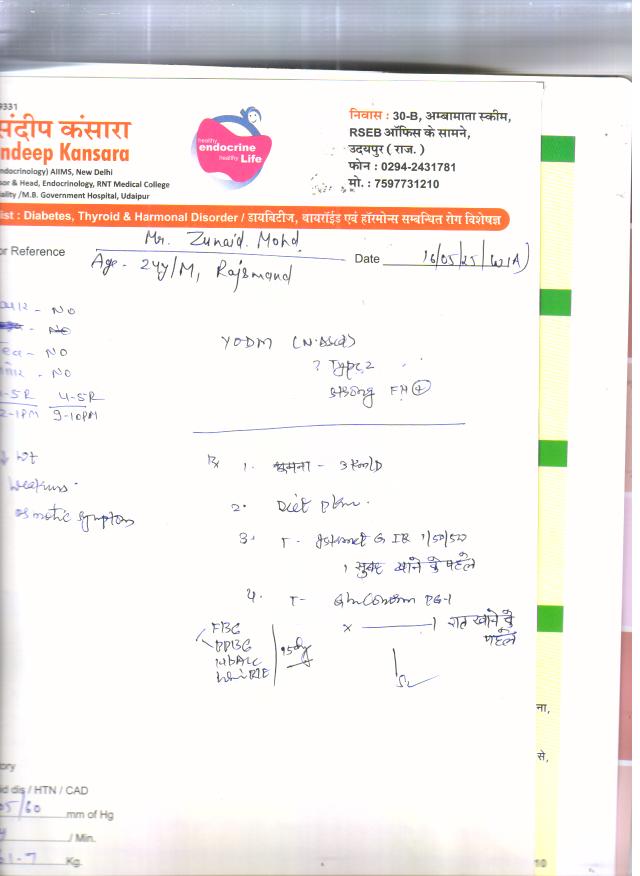 9331
संदीप कंसारा
ndeep Kansara
ndocrinology) AIIMS, New Delhi
sor & Head, Endocrinology, RNT Medical College
ality /M.B. Government Hospital, Udaipur
healthy
endocrine
healthy Life
निवास : 30-B, अम्बामाता स्कीम,
RSEB ऑफिस के सामने,
उदयपुर ( राज. )
फोन : 0294-2431781
मो. : 7597731210
ist : Diabetes, Thyroid & Harmonal Disorder / डायबिटीज, थायरॉईड एवं हॉरमोन्स सम्बन्धित रोग विशेषज्ञ
or Reference
Mr. Zunaid. Mohd
Date 16/05/25/
Age - 24y/M, Rajsmand
- NO
- NO
- NO
- NO
4-5R
2-1PM 9-10PM
↓ wt
weakness.
osmotic symptom
YODM
? Type 2
strong FH +
Rx 1. घूमना - 3 km/D
2. Diet plan.
3. T- G IR 1/50/500
1 सुबह खाने के पहले
4. T- PG-1
x ——— 1 रात खाने के पहले
FBG
PPBG
HbA1c
15 day
ory
id dis / HTN / CAD
05/60 mm of Hg
/ Min.
61.7 Kg.
ना,
से,
10